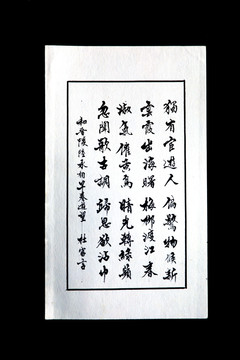 獨有宦遊人偏驚物候新
雲霞出海曙梅柳渡江春
淑氣催黃鳥晴光轉綠蘋
忽聞歌古調歸思欲沾巾
和晉陵陸丞相早春遊望 杜審言